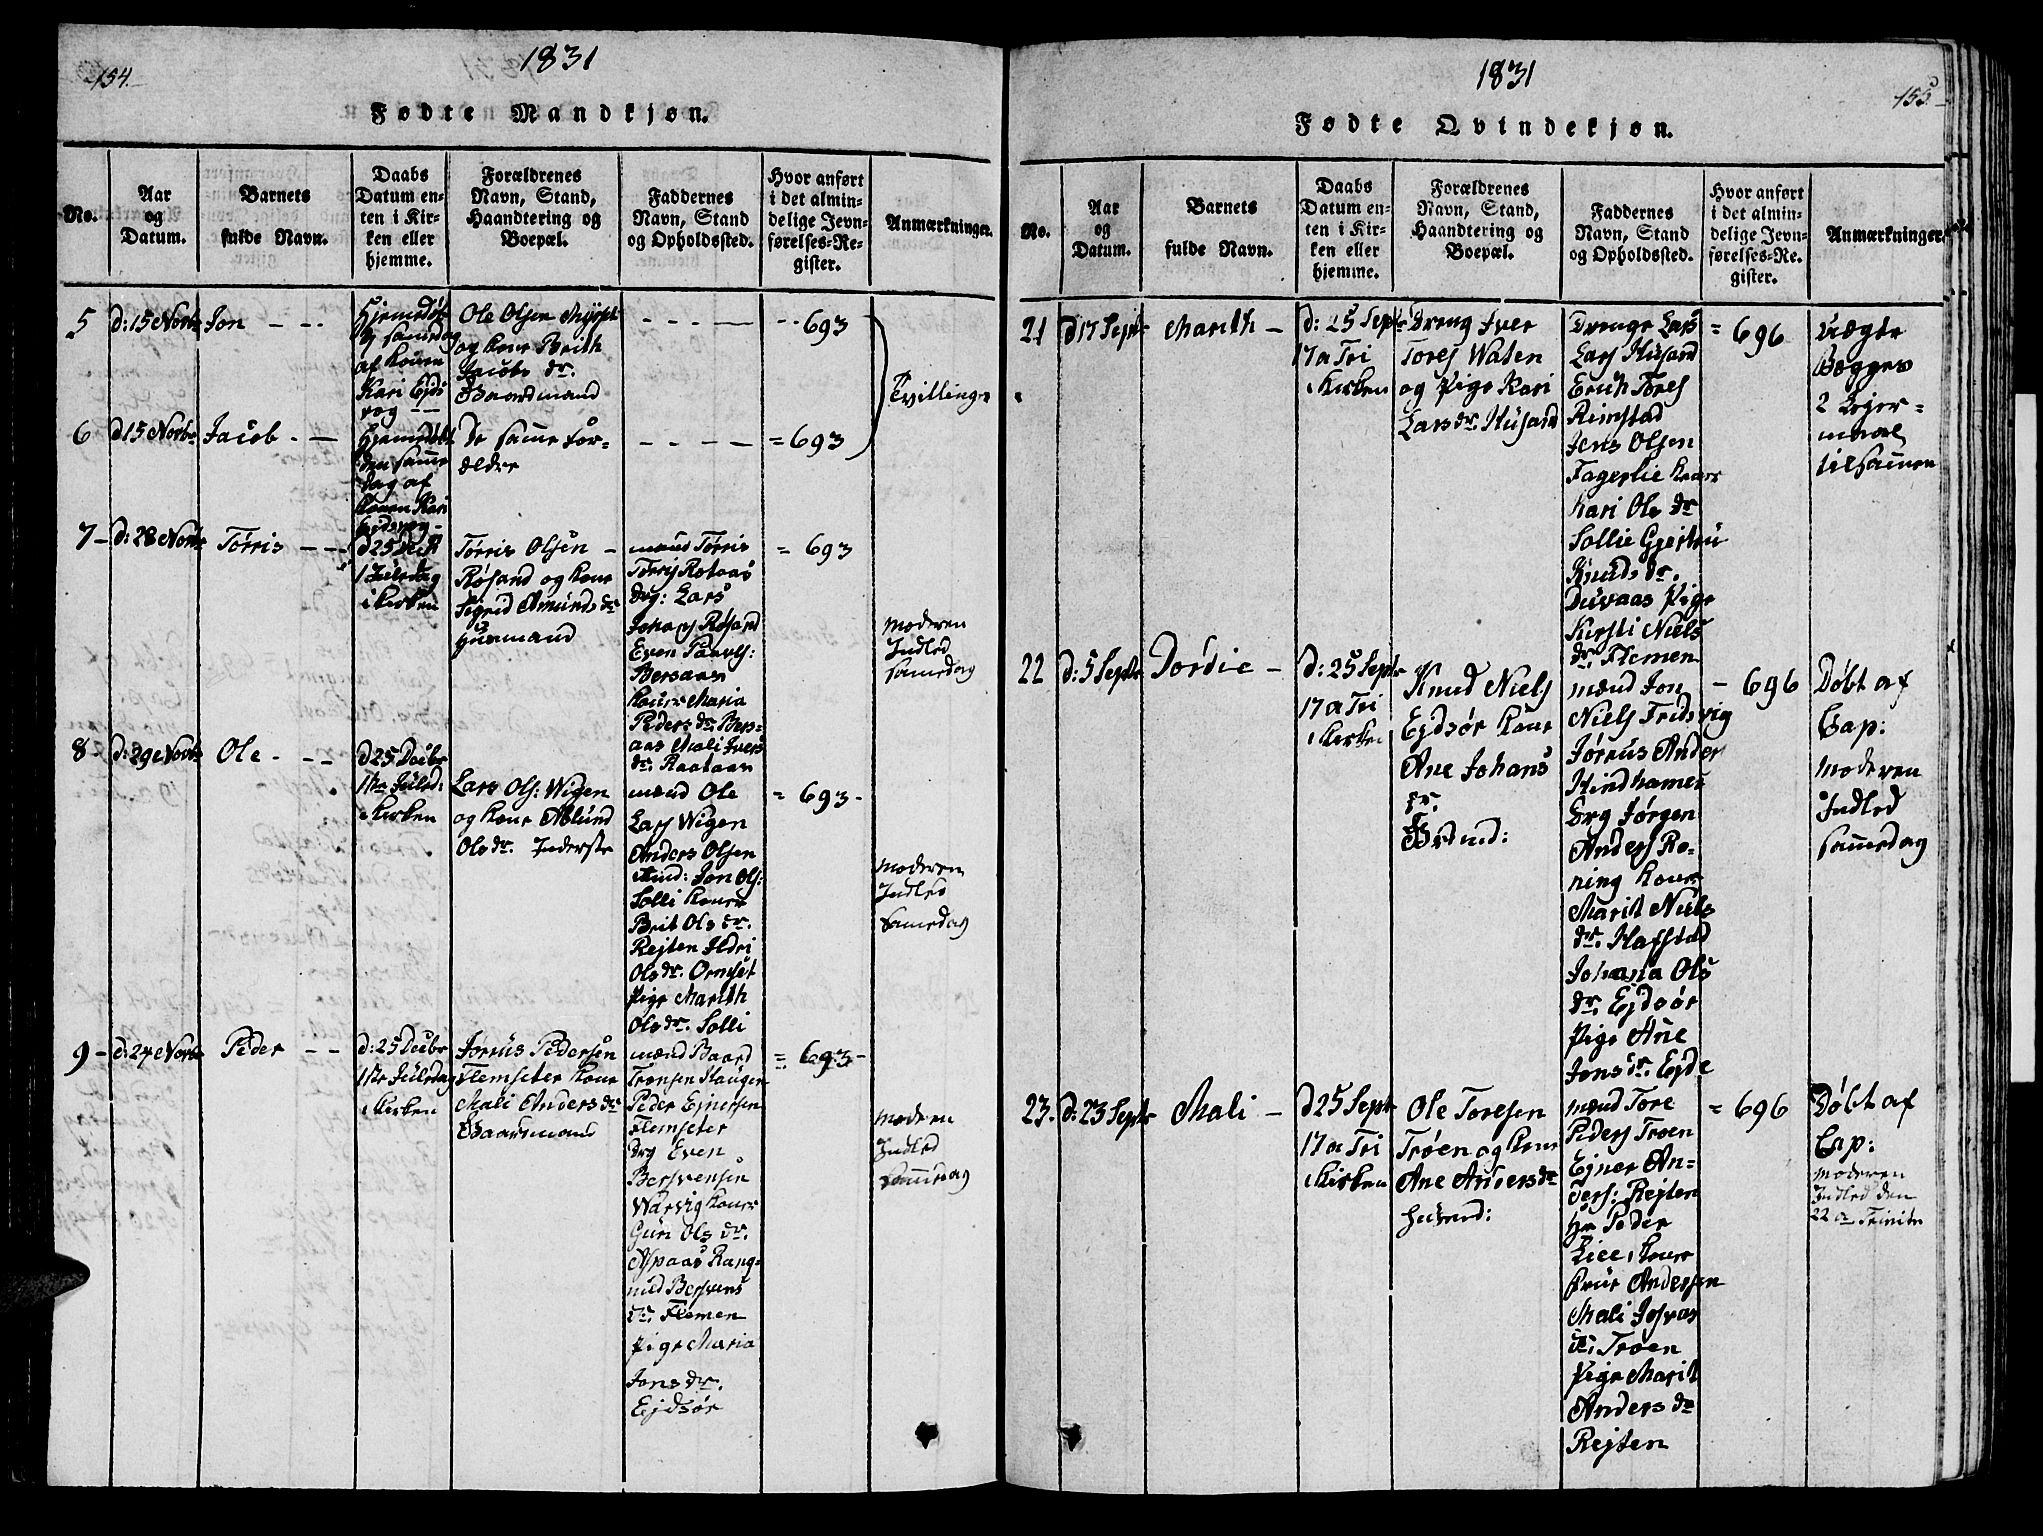 154.
1831
Fødte Mandkjøn.
No.
Aar
og
Datum.
Barnets
fulde Navn.
Daabs
Datum en-
ten i Kir-
ken eller
hjemme.
Forældrenes
Navn, Stand,
Haandtering og
Boepæl.
Faddernes
Navn, Stand
og Opholdssted.
Hvor anført
i det almin-
delige Jevn-
førelses-Re-
gister.
Anmærkninger.
5
d: 15 Novbr
Jon - - -
Hjemedøb
samedag
af Konen
Kari Ejds
vog --
Ole Olsen
og Kone Brith
Jacobs dr.
Gaardmand
- - - -
- - 693
Tvillinge
6
d 15 Novbr
Jacob - -
Hjemdøbt
den samme
dag af
Konen Kari
Ejdsvog -
De samme For-
ældre
- - - -
= 693
7 -
d: 28 Novbr
Tørris - - -
1 Juledag
i Kirken
Tørris Olsen -
Røsand og Kone
Sigrid Amunds dr
Huusmand
mænd Tørris
Tores Rotaas
drg: Lars
Johans Røsand
Even Paavels:
Bersaas
Koner Maria
Peders dr. Bers-
aas Mali Ivers
dr. Raataas
= 693
Moderen
Indled
samedag
8
d: 29 Novbr
Ole - - -
d 25 Decbr
1ste Juled:
i Kirken
Lars Ols: Wigen
og Kone Ablund
Ols dr. Inderste
mænd Ole
Lars Wigen
Anders Olsen
Jon Ols:
Solli Koner
Brit Ols dr.
Rejten Ildri
Ols dr. Ornset
Pige Marith
Ols dr. Solli
= 693 -
Moderen
Indled
Samedag
9 -
d: 24 Novbr
Peder - -
d: 25 Decbr
1ste Juledag
i Kirken
Jørrus Pedersen
Flemseter Kone
Mali Anders dr
Gaardmand
mænd Baard
Tronsen Haugen
Peder Ejnersen
Flemseter
drg Even
Bersvensen
Warvig Koner
Guri Ols dr.
Aspaas Rang-
nild Bersvens
dr. Flemen
Pige Maria
Jons dr.
Ejdsør
= 693 -
Moderen
Indled
samedag
1831
155.
Fødte Qvindekjøn.
No.
Aar
og
Datum.
Barnets
fulde Navn.
Daabs
Datum en-
ten i Kir-
ken eller
hjemme.
Forældrenes
Navn, Stand,
Haandtering og
Boepæl.
Faddernes
Navn, Stand
og Opholdssted.
Hvor anført
i det almin-
delige Jevn-
førelses-Re-
gister.
Anmærkninger.
21
d 17 Septr
Marith -
d: 25 Septr
17 a Tri
i Kirken
Dreng Iver
Tores Waten
og Pige Kari
Lars dr. Husand
Drenge Lars
Lars Husand
Erich Tores
Reinstad
Jens Olsen
Fagerlie Koner
Kari Ols dr
Sollie Gjertru
Knuds dr.
Duvaas Pige
Kirsti Niels
dr. Flemen
= 696
Uægte
Begges
2 Lejer-
maal
tilsamen
22
d: 5 Septr
Dordie -
d: 25 Septr
17 a Tri
i Kirken
Knud Niels
Ejdsør Kone
Ane Johans
dr.
mænd Jon
Niels Fredsvig
Jørrus Ander
Hindhamer
Drg Jørgen
Anders Rø-
ning Koner
Marit Niels
dr. Hafstad
Johana Ols
dr. Ejdsør
Pige Ane
Jons dr. Ejde
- 696
Døbt af
Cap:
Moderen
Indled
samedag
23.
d: 23 Septr
Mali -
d 25 Septr
17 a Tri
i Kirken
Ole Toresen
Trøen og Kone
Ane Anders dr
mænd Tore
Peders Trøen
Ejner An-
ders: Rejten
Hr Peder
Lie, Koner
Frue Andersen
Mali Josvas
dr. Trøen
Pige Marit
Anders dr
Rejten
= 696
Døbt af
Cap:
Moderen
Indled den
22 a Trinit: